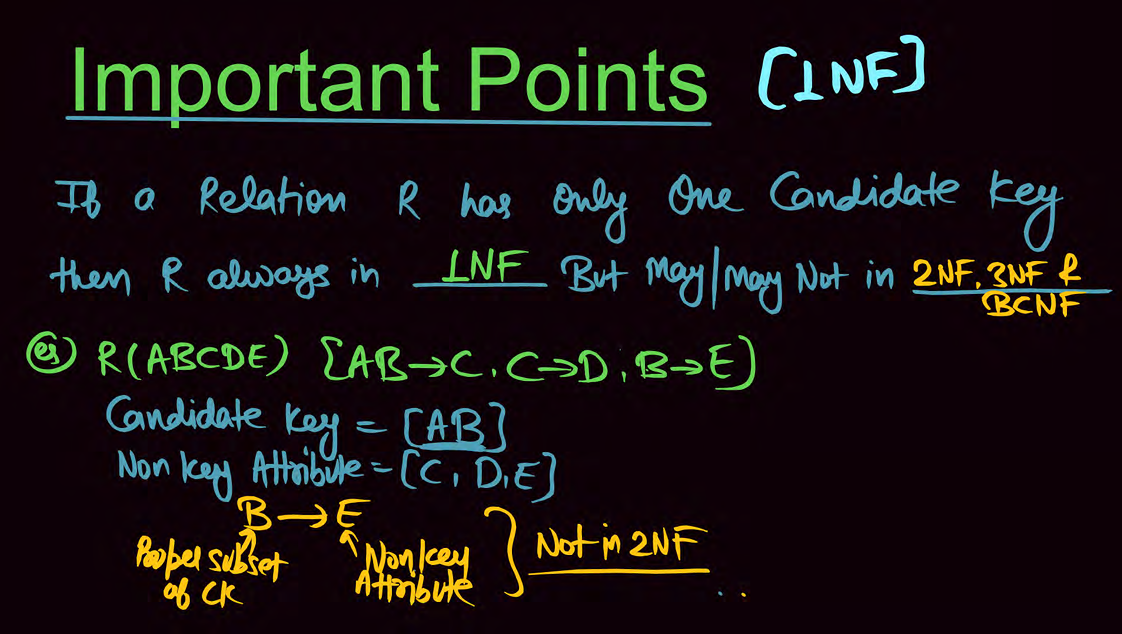 Important Points [1NF]
If a Relation R has only One Candidate Key
then R always in 1NF But May/May Not in 2NF, 3NF &
BCNF
eg) R(ABCDE) [AB→C, C→D, B→E]
Candidate Key = [AB]
Non Key Attribute = [C, D, E]
B → E
Proper subset of CK
Non Key Attribute
Not in 2NF